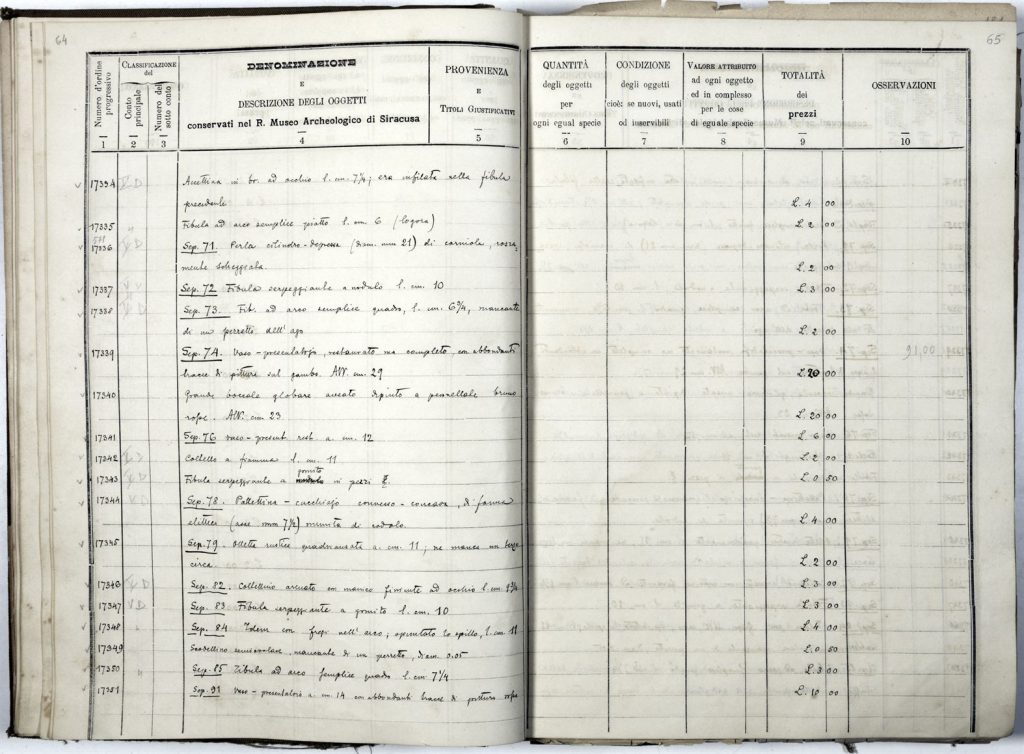 64
Numero d'ordine progressivo
CLASSIFICAZIONE del
Conto principale
Numero del sotto conto
DENOMINAZIONE
E
DESCRIZIONE DEGLI OGGETTI
conservati nel R. Museo Archeologico di Siracusa
PROVENIENZA
E
TITOLI GIUSTIFICATIVI
1 2 3 4 5
17334 in br. ad occhio l. cm. 7½; era infilata nella fibula
precedente
17335 Fibula ad arco semplice piatto l. cm 6 (logora)
17336 Sep. 71. Perla cilindro-depressa (diam. mm 21) di corniola, rozza-
mente
17337 Sep. 72 Fibula serpeggiante a nodulo l. cm. 10
17338 Sep. 73. Fib. ad arco semplice quadro, l. cm. 6¾, mancante
di un pezzetto dell'ago
17339 Sep. 74. Vaso-presentatoio, restaurato ma completo, con abbondanti
tracce di pitture sul gambo. Alt. cm. 29
17340 Grande boccale globare ansato dipinto a pennellate bruno
rosse. Alt. cm. 23
17341 Sep. 76 vaso-present. rest. a. cm. 12
17342 Coltello a fiamma l. cm. 11
17343 Fibula serpeggiante a gomito in pezzi 2.
17344 Sep. 78. Palettina-cucchiajo convesso-concava, di forma
elittica (asse mm 7½) munita di codolo.
17345 Sep. 79. Olletta rustica quadriansata a. cm. 11; ne manca un terzo
circa.
17346 Sep. 82. Coltellino arcuato con manico ad occhio l. cm
17347 Sep. 83 Fibula serpeggiante a gomito l. cm. 10
17348 Sep. 84 Idem con fregi nell'arco; spuntato lo spillo, l. cm 11
17349 Scodellino emisferico, mancante di un pezzetto, diam. 0.05
17350 Sep. 85 Fibula ad arco semplice quadro l. cm. 7¼
17351 Sep. 91 Vaso-presentatoio a. cm. 14 con abbondanti tracce di pittura rossa
65
QUANTITÀ
degli oggetti
per
ogni egual specie
CONDIZIONE
degli oggetti
cioè: se nuovi, usati
od inservibili
VALORE ATTRIBUITO
ad ogni oggetto
ed in complesso
per le cose
di eguale specie
TOTALITÀ
dei
prezzi
OSSERVAZIONI
6 7 8 9 10
L. 4 00
L. 2 00
L. 2 00
L. 3 00
L. 2 00
91,00
L. 20 00
L. 20 00
L. 6 00
L. 2 00
L. 0 50
L. 4 00
L. 2 00
L. 3 00
L. 3 00
L. 4 00
L. 0 50
L. 3 00
L. 10 00